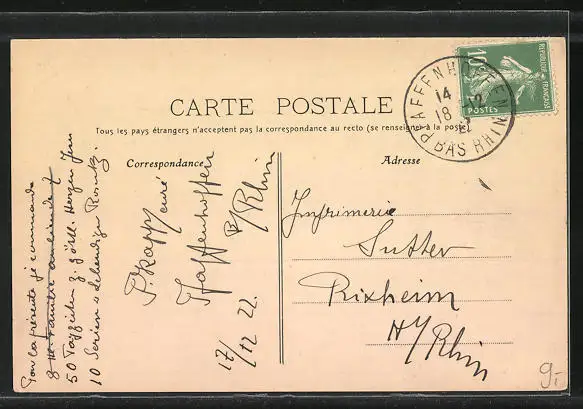 CARTE POSTALE
Tous les pays étrangers n'acceptent pas la correspondance au recto (se renseigner à la poste)
Correspondance
Adresse
10
POSTES
REPUBLIQUE FRANÇAISE
PFAFFENHOFFEN
14
18 12
BAS RHIN
Par la présente je commande
50
10 Serien
P. Kapp
curé
Pfaffenhoffen
B/Rhin
17/12 22.
Imprimerie
Sutter
Rixheim
H/Rhin
9.-